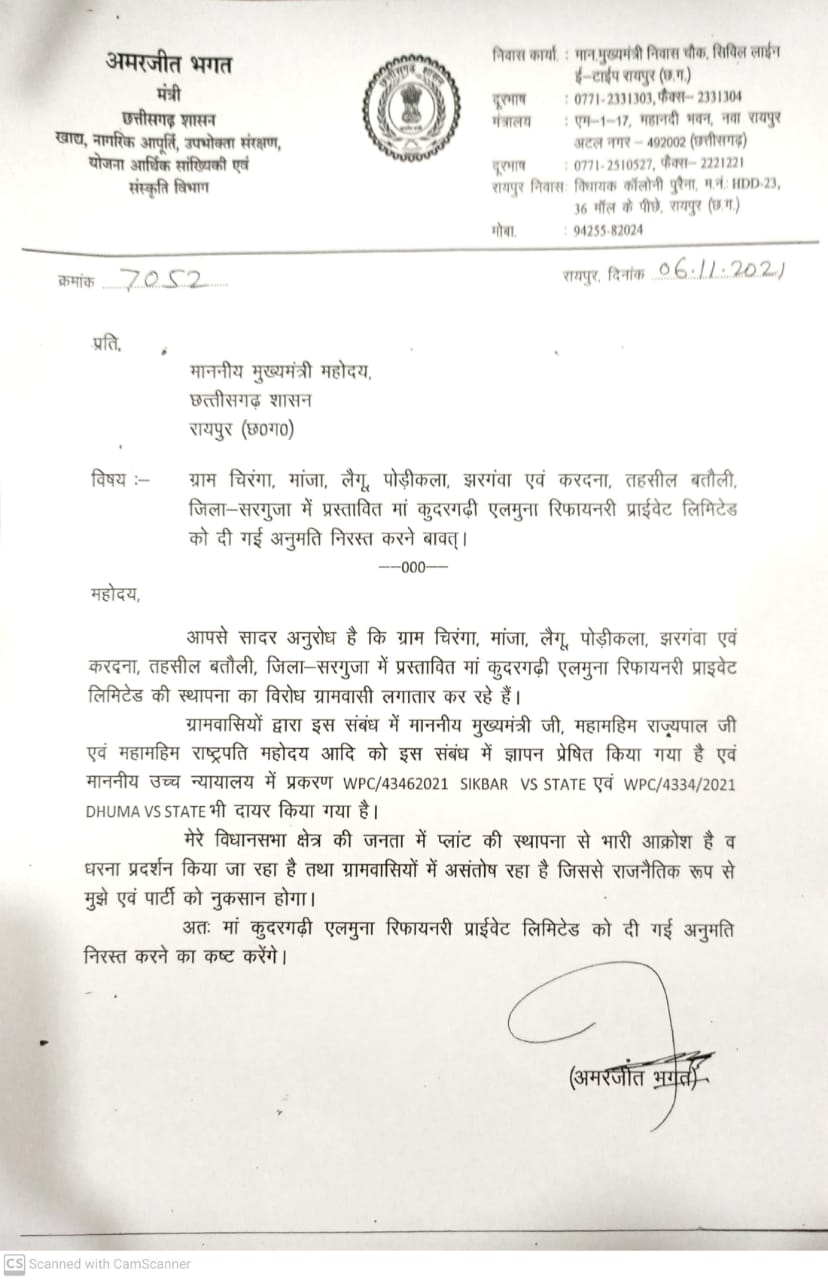 अमरजीत भगत
मंत्री
छत्तीसगढ़ शासन
खाद्य, नागरिक आपूर्ति, उपभोक्ता संरक्षण,
योजना आर्थिक सांख्यिकी एवं
संस्कृति विभाग
छत्तीसगढ़ शासन
निवास कार्या. : मान.मुख्यमंत्री निवास चौक, सिविल लाईन
ई-टाईप रायपुर (छ.ग.)
दूरभाष : 0771-2331303, फैक्स- 2331304
मंत्रालय : एम-1-17, महानदी भवन, नवा रायपुर
अटल नगर - 492002 (छत्तीसगढ़)
दूरभाष : 0771-2510527, फैक्स- 2221221
रायपुर निवास: विधायक कॉलोनी पुरैना, म.नं.: HDD-23,
36 मॉल के पीछे, रायपुर (छ.ग.)
मोबा. : 94255-82024
क्रमांक 7052
रायपुर, दिनांक 06.11.2021
प्रति,
माननीय मुख्यमंत्री महोदय,
छत्तीसगढ़ शासन
रायपुर (छ0ग0)
विषय :- ग्राम चिरंगा, मांजा, लैगू, पोड़ीकला, झरगंवा एवं करदना, तहसील बतौली,
जिला-सरगुजा में प्रस्तावित मां कुदरगढ़ी एलमुना रिफायनरी प्राईवेट लिमिटेड
को दी गई अनुमति निरस्त करने बावत्।
--000--
महोदय,
आपसे सादर अनुरोध है कि ग्राम चिरंगा, मांजा, लैगू, पोड़ीकला, झरगंवा एवं
करदना, तहसील बतौली, जिला-सरगुजा में प्रस्तावित मां कुदरगढ़ी एलमुना रिफायनरी प्राइवेट
लिमिटेड की स्थापना का विरोध ग्रामवासी लगातार कर रहे हैं।
ग्रामवासियों द्वारा इस संबंध में माननीय मुख्यमंत्री जी, महामहिम राज्यपाल जी
एवं महामहिम राष्ट्रपति महोदय आदि को इस संबंध में ज्ञापन प्रेषित किया गया है एवं
माननीय उच्च न्यायालय में प्रकरण WPC/43462021 SIKBAR VS STATE एवं WPC/4334/2021
DHUMA VS STATE भी दायर किया गया है।
मेरे विधानसभा क्षेत्र की जनता में प्लांट की स्थापना से भारी आक्रोश है व
धरना प्रदर्शन किया जा रहा है तथा ग्रामवासियों में असंतोष रहा है जिससे राजनैतिक रूप से
मुझे एवं पार्टी को नुकसान होगा।
अतः मां कुदरगढ़ी एलमुना रिफायनरी प्राईवेट लिमिटेड को दी गई अनुमति
निरस्त करने का कष्ट करेंगे।
(अमरजीत भगत)
CS Scanned with CamScanner